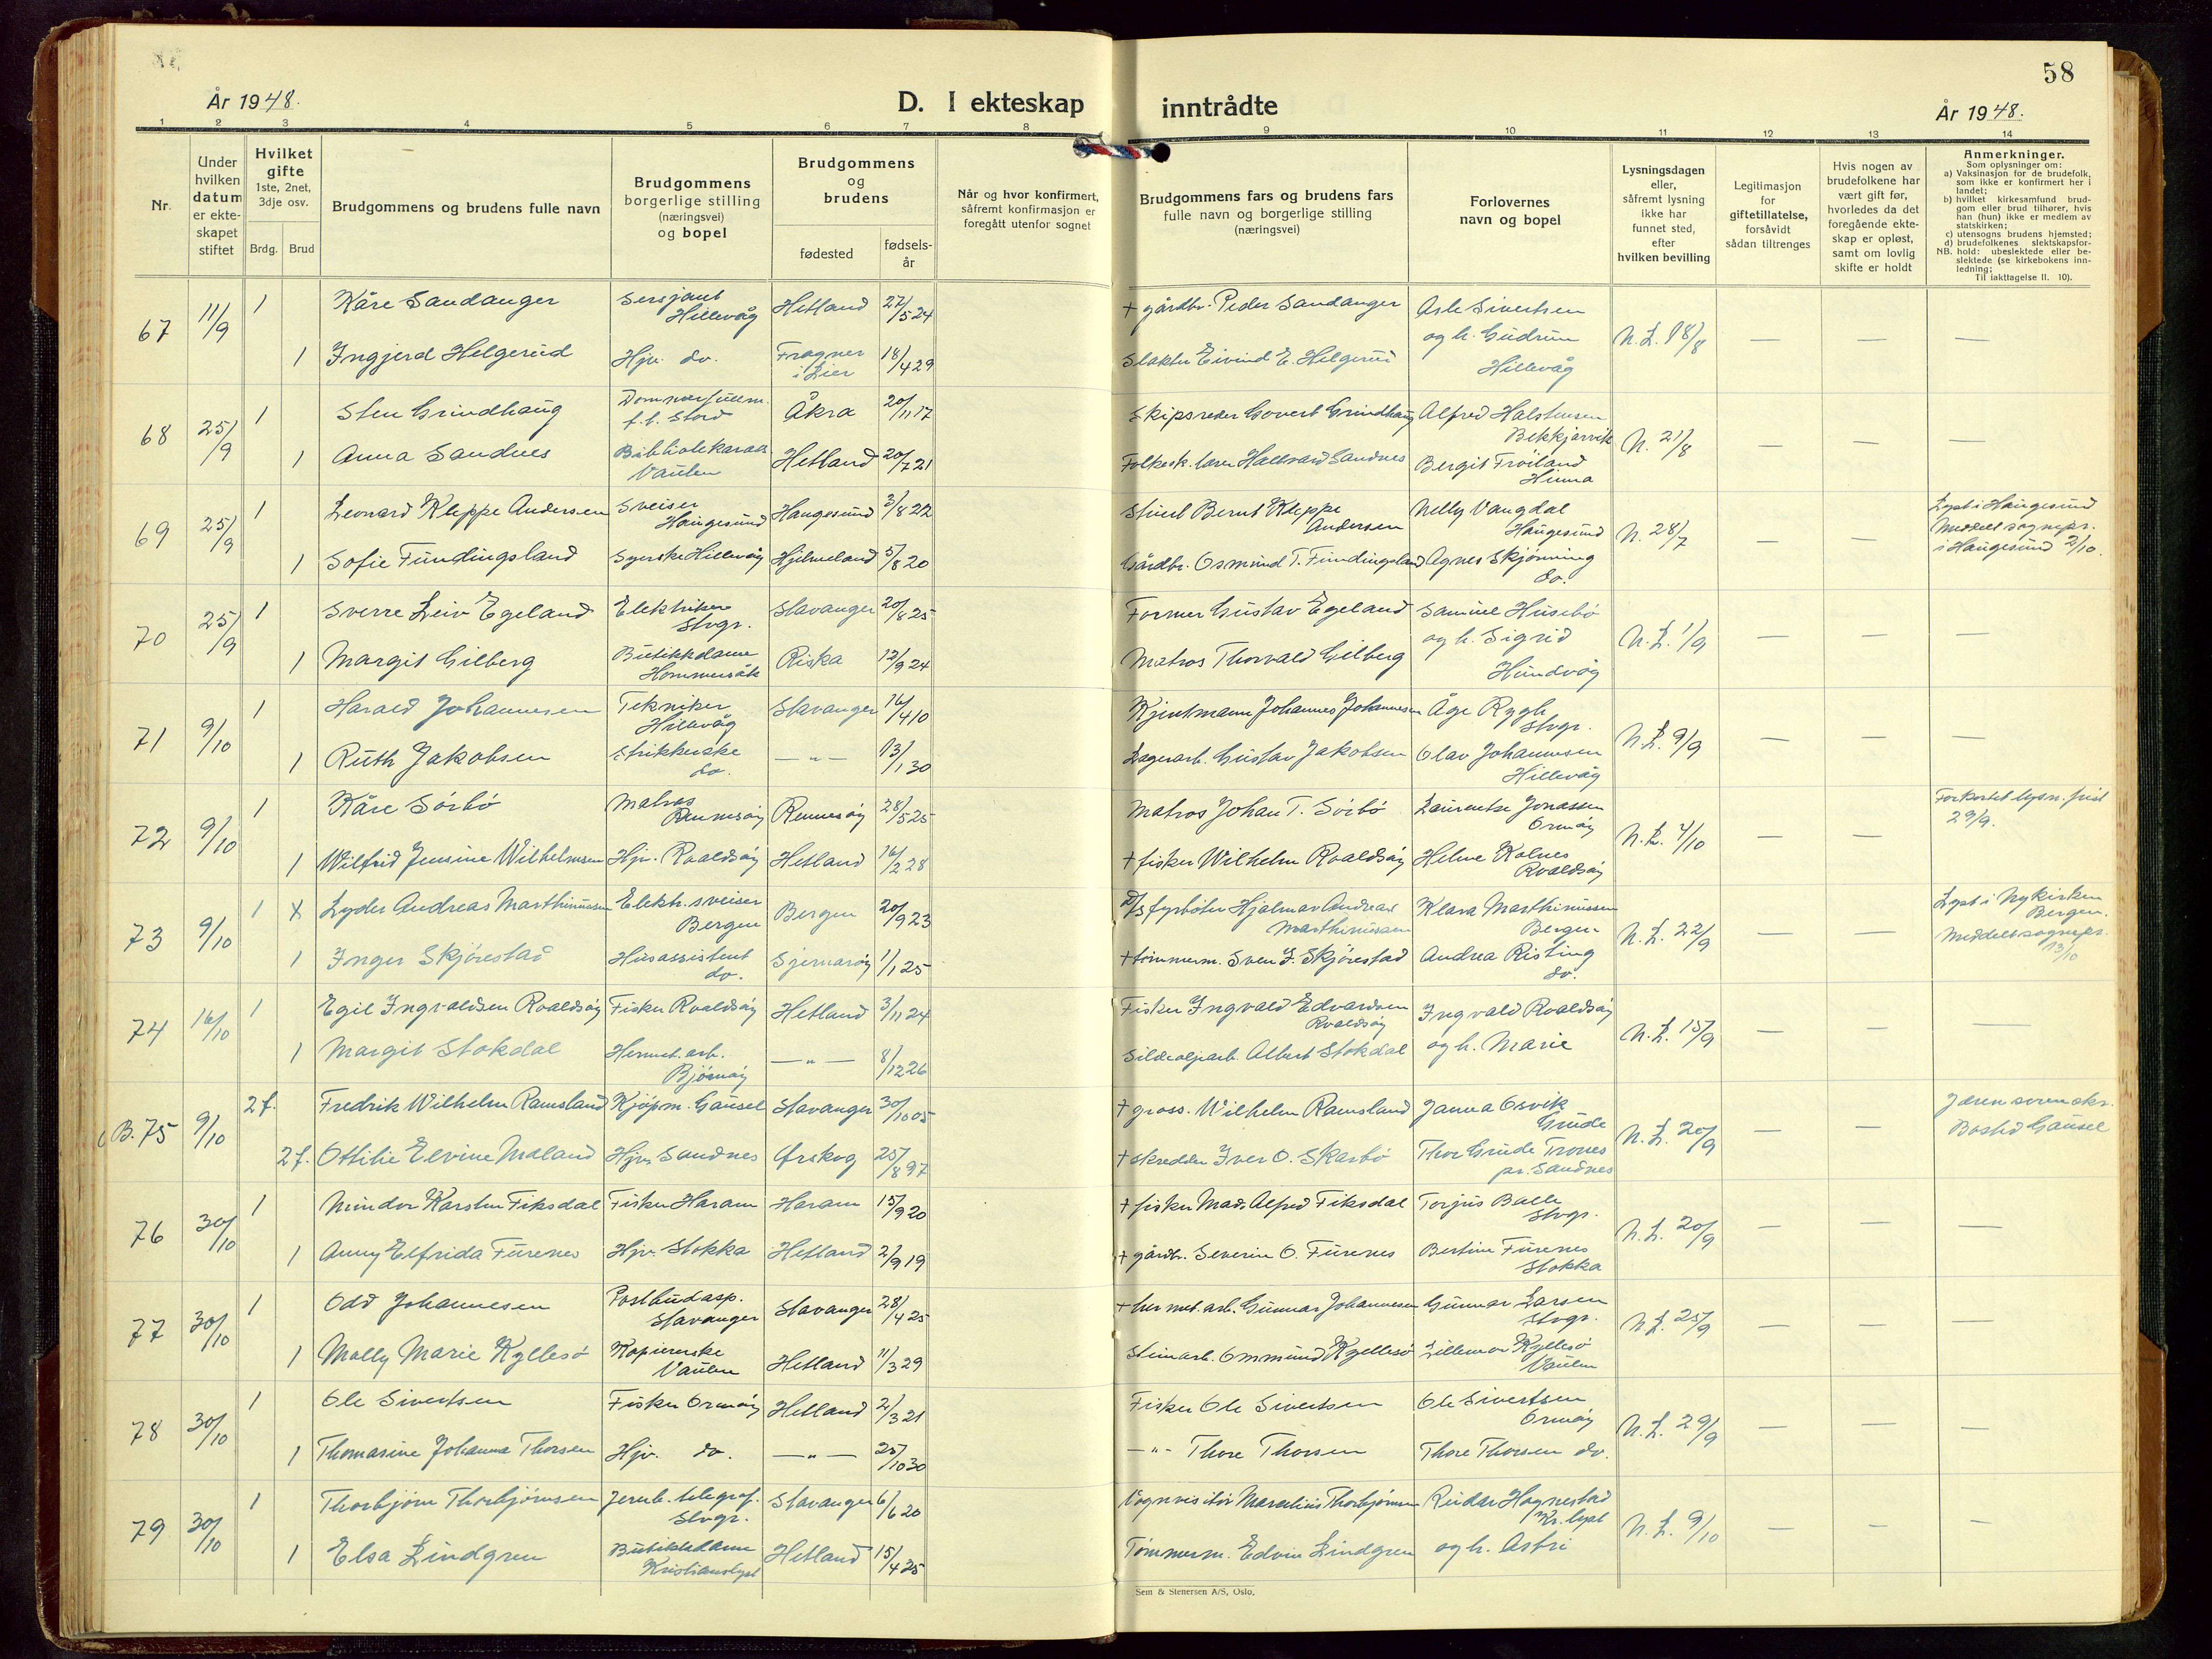 58
År 1948.
D. I ekteskap inntrådte
År 1948.
1 2 3 4 5 6 7 8 9 10 11 12 13 14
Nr.
Under hvilken datum er ekteskapet stiftet
Hvilket gifte 1ste, 2net, 3dje osv.
Brdg. Brud
Brudgommens og brudens fulle navn
Brudgommens borgerlige stilling (næringsvei) og bopel
Brudgommens og brudens
fødested
fødselsår
Når og hvor konfirmert, såfremt konfirmasjon er foregått utenfor sognet
Brudgommens fars og brudens fars fulle navn og borgerlige stilling (næringsvei)
Forlovernes navn og bopel
Lysningsdagen eller, såfremt lysning ikke har funnet sted, efter hvilken bevilling
Legitimasjon for giftetillatelse, forsåvidt sådan tiltrenges
Hvis nogen av brudefolkene har vært gift før, hvorledes da det foregående ekteskap er opløst, samt om lovlig skifte er holdt
Anmerkninger.
Som oplysninger om:
a) Vaksinasjon for de brudefolk, som ikke er konfirmert her i landet;
b) hvilket kirkesamfund brudgom eller brud tilhører, hvis han (hun) ikke er medlem av statskirken;
c) utensogns brudens hjemsted;
d) brudefolkenes slektskapsforhold: ubeslektede eller beslektede (se kirkebokens innledning;
NB. Til iakttagelse II. 10).
67 11/9 1 Kåre Sandanger Sersjant Hillevåg Hetland 27/5 24 + gårdbr. Peder Sandanger Asle Sivertsen og h. Gudrun Hillevåg N.L. 18/8 — — —
1 Ingjerd Helgerud Hjv. do. Fragner i Lier 18/4 29 Slakter Eivind E. Helgerud
68 25/9 1 Sten Grindhaug f.t. Stord Åkra 20/11 17 Skipsreder Govert Grindhaug Alfred Halstensen Bekkjarvik N. 21/8 — — —
1 Anna Sandnes Vaulen Hetland 20/7 21 Folkesk. lærer Hallvard Sandnes Bergit Frøiland Hinna
69 25/9 1 Leonard Kleppe Andersen Sveiser Haugesund Haugesund 3/8 22 Stuert Bernt Kleppe Andersen Nelly Vangdal Haugesund N. 28/7 — — Lyst i Haugesund Meddelt sognepr. i Haugesund 2/10.
1 Sofie Fundingsland Syerske Hillevåg Hjelmeland 5/8 20 Gårdbr. Osmund T. Fundingsland Agnes Skjønning do.
70 25/9 1 Sverre Leiv Egeland Elektriker Stvgr. Stavanger 20/8 25 Former Gustav Egeland Samuel Husebø og h. Sigrid Hundvåg N.L. 1/9 — — —
1 Margit Gilberg Butikkdame Hommersåk Riska 12/9 24 Matros Thorvald Gilberg
71 9/10 1 Harald Johannesen Tekniker Hillevåg Stavanger 16/4 10 Kjentmann Johannes Johannesen Åge Rygh Stvgr. N.L. 9/9 — — —
1 Ruth Jakobsen Strikkerske do. — " — 13/1 30 Lagerarb. Gustav Jakobsen Olav Johannesen Hillevåg
72 9/10 1 Kåre Sørbø Matros Rennesøy Rennesøy 28/5 25 Matros Johan T. Sørbø Laurentse Jonassen Ormøy N.L. 4/10 — — Forkortet lysn. frist 29/9.
1 Wilfrid Jensine Wilhelmsen Hjv. Roaldsøy Hetland 16/2 28 + fisker Wilhelm Roaldsøy Helene Kolnes Roaldsøy
73 9/10 1 X Lyder Andreas Marthinussen Elektr. sveiser Bergen Bergen 20/9 23 D/S fyrbøter Hjalmar Andreas Marthinussen Klara Marthinussen Bergen N.L. 22/9 — — Lyst i Nykirken Bergen. Meddelt sognepr. 13/10
1 Inger Skjørestad Husassistent do. Sjernarøy 1/1 25 + tømmerm. Sven J. Skjørestad Andrea Risting do.
74 16/10 1 Egil Ingvaldsen Roaldsøy Fisker Roaldsøy Hetland 3/11 24 Fisker Ingvald Edvardsen Roaldsøy Ingvald Roaldsøy og h. Marie N.L. 15/9 — — —
1 Margit Stokdal Hermet. arb. Bjørnøy — " — 8/12 26 Sildeoljearb. Albert Stokdal
B. 75 9/10 2f. Fredrik Wilhelm Ramsland Kjøpm. Gausel Stavanger 30/10 05 + gross. Wilhelm Ramsland Janna Osvik Grude N.L. 20/9 — — Jæren sorenskr. Bosted Gausel
2f. Ottilie Elvine Maland Hjv. Sandnes Ørskog 25/8 97 + skredder Iver O. Skarbø Thor Grude Trones pr. Sandnes
76 30/10 1 Mindor Karsten Fiksdal Fisker Haram Haram 15/9 20 + fisker Mads Alfred Fiksdal Torjus Balle Stvgr. N.L. 20/9 — — —
1 Anny Elfrida Furenes Hjv. Stokka Hetland 2/9 19 + gårdbr. Severin O. Furenes Bertine Furenes Stokka
77 30/10 1 Odd Johannesen Postbudasp. Stavanger Stavanger 28/4 25 + hermet. arb. Gunnar Johannesen Gunnar Larsen Stvgr. N.L. 25/9 — — —
1 Molly Marie Kyllesø Kopierske Vaulen Hetland 11/3 29 Steinarb. Ommund Kyllesø Lillemor Kyllesø Vaulen
78 30/10 1 Ole Sivertsen Fisker Ormøy Hetland 2/3 21 Fisker Ole Sivertsen Ole Sivertsen Ormøy N.L. 29/9 — — —
1 Thomasine Johanna Thorsen Hjv. do. — " — 25/10 30 — " — Thore Thorsen Thore Thorsen do.
79 30/10 1 Thorbjørn Thorbjørnsen Jernb. telegraf. Stvgr. Stavanger 6/6 20 Vognvisitør Marselius Thorbjørnsen Reidar Hognestad Kr. lyst og h. Astri N.L. 9/10 — — —
1 Elsa Lindgren Butikkdame Kristianslyst Hetland 15/4 25 Tømmerm. Edvin Lindgren
Sem & Stenersen A/S, Oslo.